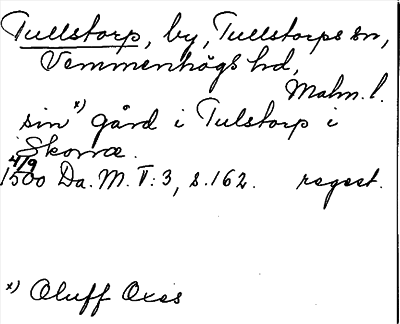 Tullstorp, by, Tullstorps sn,
Vemmenhögs hd,
Malm. l.
sin x) gård i Tulstorp i
Skonæ.
4/9
1500 Da. M. V: 3, s. 162. regest.
x) Oluff Oxes